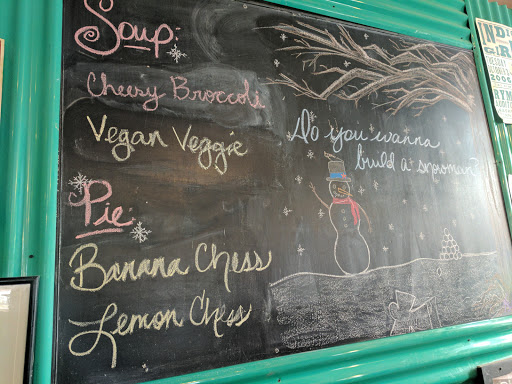 Soup:
Cheery Broccoli
Vegan Veggie
Pie:
Banana Chess
Lemon Chess
Do you wanna
build a snowman?